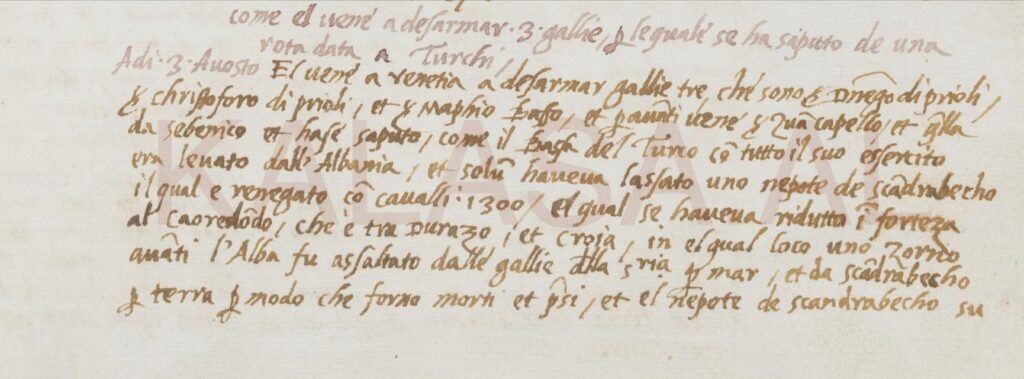 come el vené a desarmar · 3 · gallie, ꝑ lequale se ha saputo de una
rota data a Turchi,
Adi · 3 · Auosto El vené a venetia a desarmar gallie tre, che sono ꝗ Dn̄ego di prioli,
ꝗ christoforo di prioli, et ꝗ Maphio Basso, et ꝑ auāti vené ꝗ Zuā capello, et q̄lla
da sebenico et hasé saputo, come il Bassa del Turco cō tutto il suo essercito
era levato dall'Albania, et solū haveva lassato uno nepote de scādrabecho
il qual e renegato cō cavalli · 1300 / el qual se haveva ridutto ī forteza
al caoredōdo, che è tra Durazo, et Croja, in el qual loco uno zorno
auāti l'Alba fu assaltato dallé gallie d̄lla sria ꝑ mar, et da scādrābecho
ꝑ terra ꝑ modo che forno morti et p̄si, et el nepote de scandrabecho su
KALASA AL